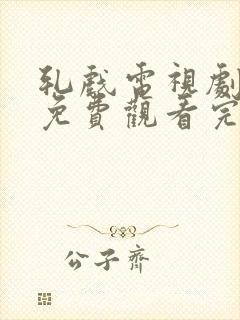 乳戲電視劇
免費觀看完
公子齊